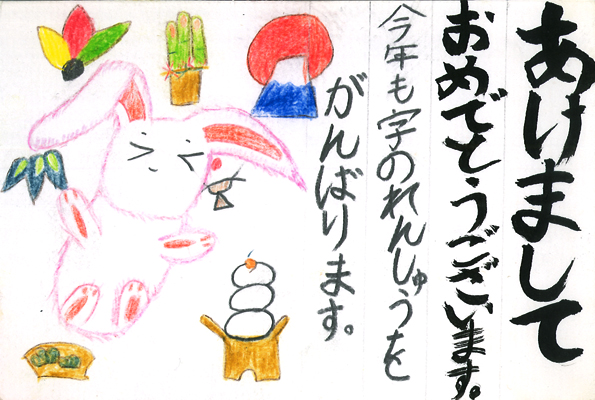 あけまして
おめでとうございます。
今年も字のれんしゅうを
がんばります。